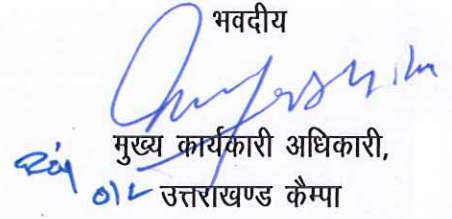 भवदीय
मुख्य कार्यकारी अधिकारी,
उत्तराखण्ड कैम्पा